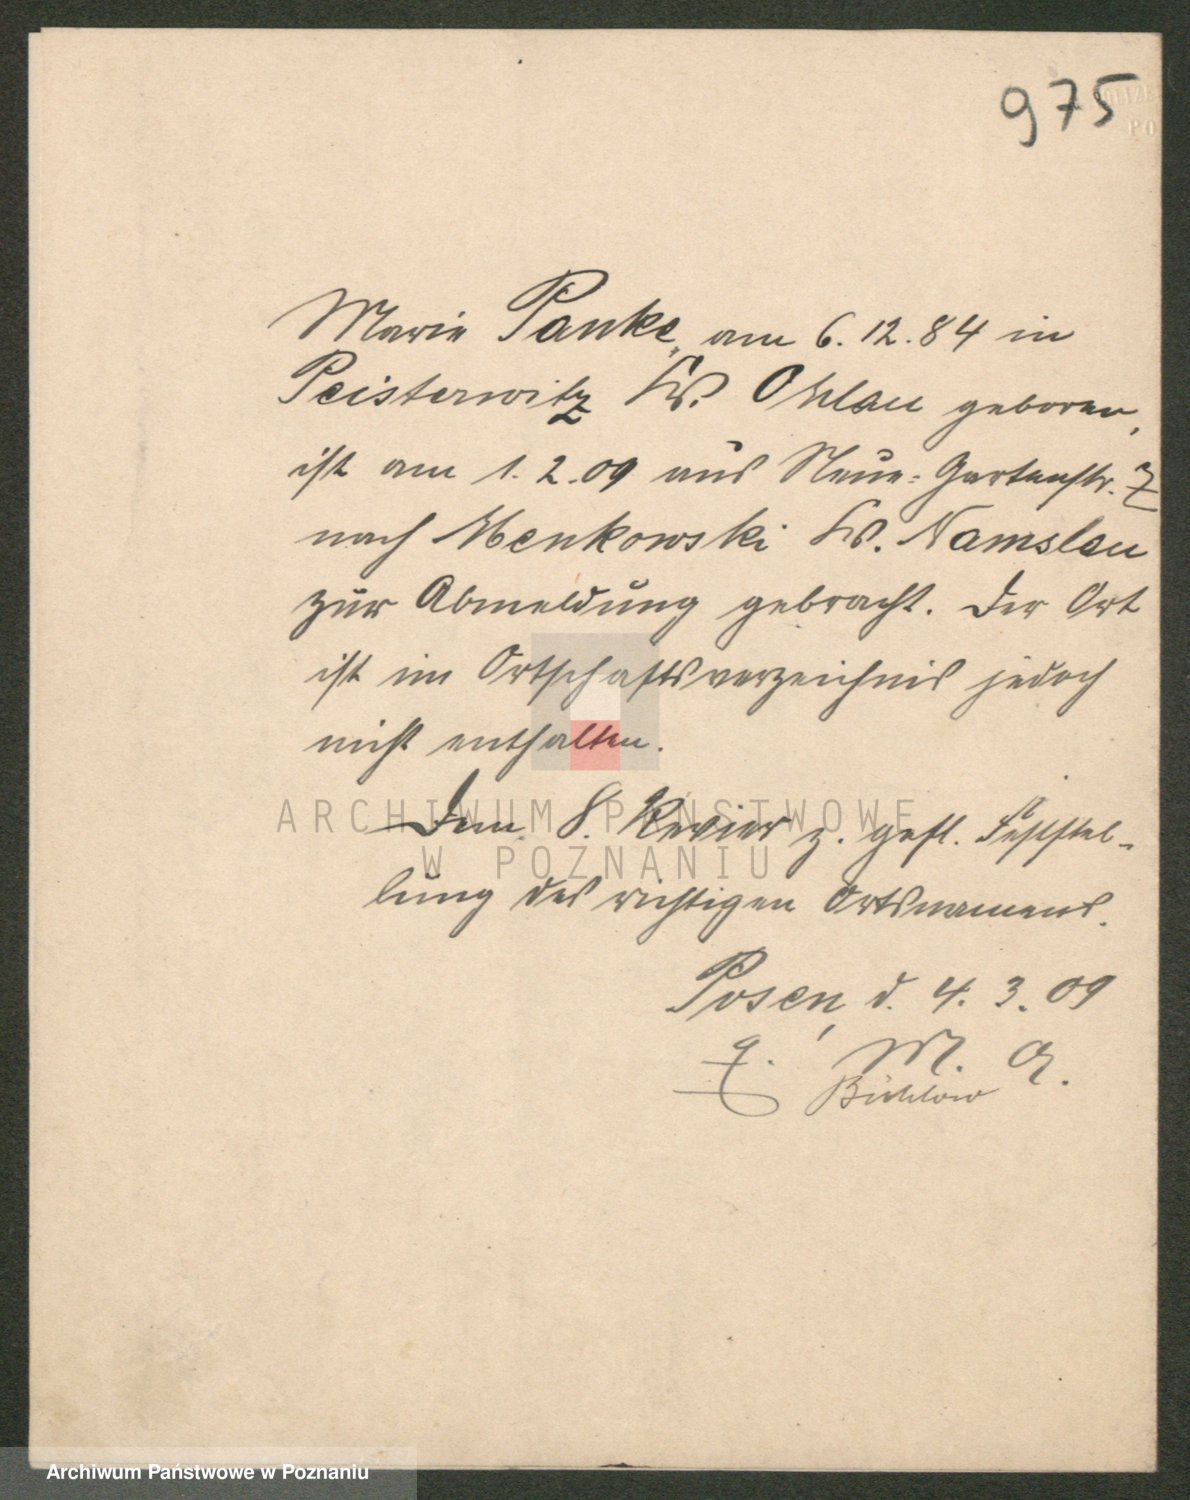 975
Marie Panke, am 6. 12. 84 in
Peisterwitz Kr. Ohlau geboren,
ist am 1. 2. 09 aus Neue-Gartenstr. 7
nach Menkowski Kr. Namslau
zur Abmeldung gebracht. Der Ort
ist im Ortschaftsverzeichnis jedoch
nicht enthalten.
Dem 8. Revier z. gefl. Feststel-
lung des richtigen Ortsnamens.
Posen, d. 4. 3. 09
M. A.
ARCHIWUM PAŃSTWOWE
W POZNANIU
Archiwum Państwowe w Poznaniu